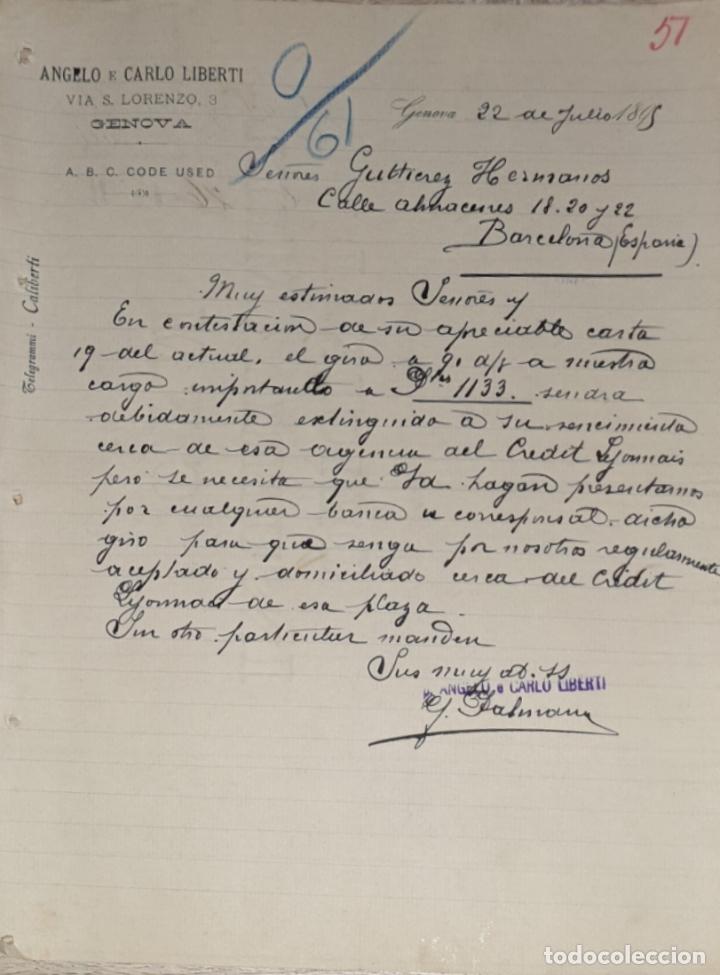 51
ANGELO E CARLO LIBERTI
VIA S. LORENZO, 3
GENOVA
A. B. C. CODE USED
Telegrammi - Caliberti
0/61
Genova 22 de Julio 1895
Señores Guttierez Hermanos
Calle almacenes 18.20 y 22
Barcelona (España)
Muy estimados Señores y
En contestacion de su apreciable carta
19 del actual, el giro a 90 d/f a nuestro
cargo importando a 1133. sendra
debidamente extinguido a su sencimiento
cerca de esa agencia del Credit Lyonnais
pero se necesita que Vd hagan presentarnos
por cualquier banca u corresponsal. dicho
giro para que senga por nosotros regularmente
aceptado y domiciliado cerca del Credit
Lyonnais de esa plaza.
Sin otro particular manden
Sus muy at. ss
p. ANGELO e CARLO LIBERTI
todocoleccion.net